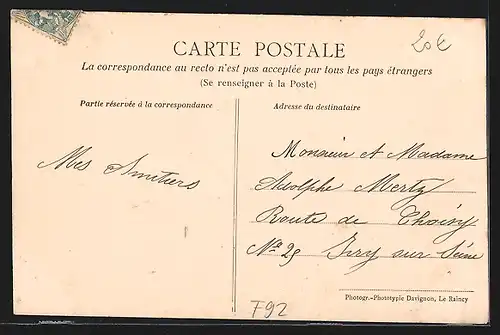 20€
CARTE POSTALE
La correspondance au recto n'est pas acceptée par tous les pays étrangers
(Se renseigner à la Poste)
Partie réservée à la correspondance
Adresse du destinataire
Monsieur et Madame
Adolphe Mertz
Route de Choisy
Nº 25 Ivry sur Seine
Photogr.-Phototypie Davignon, Le Raincy
F92